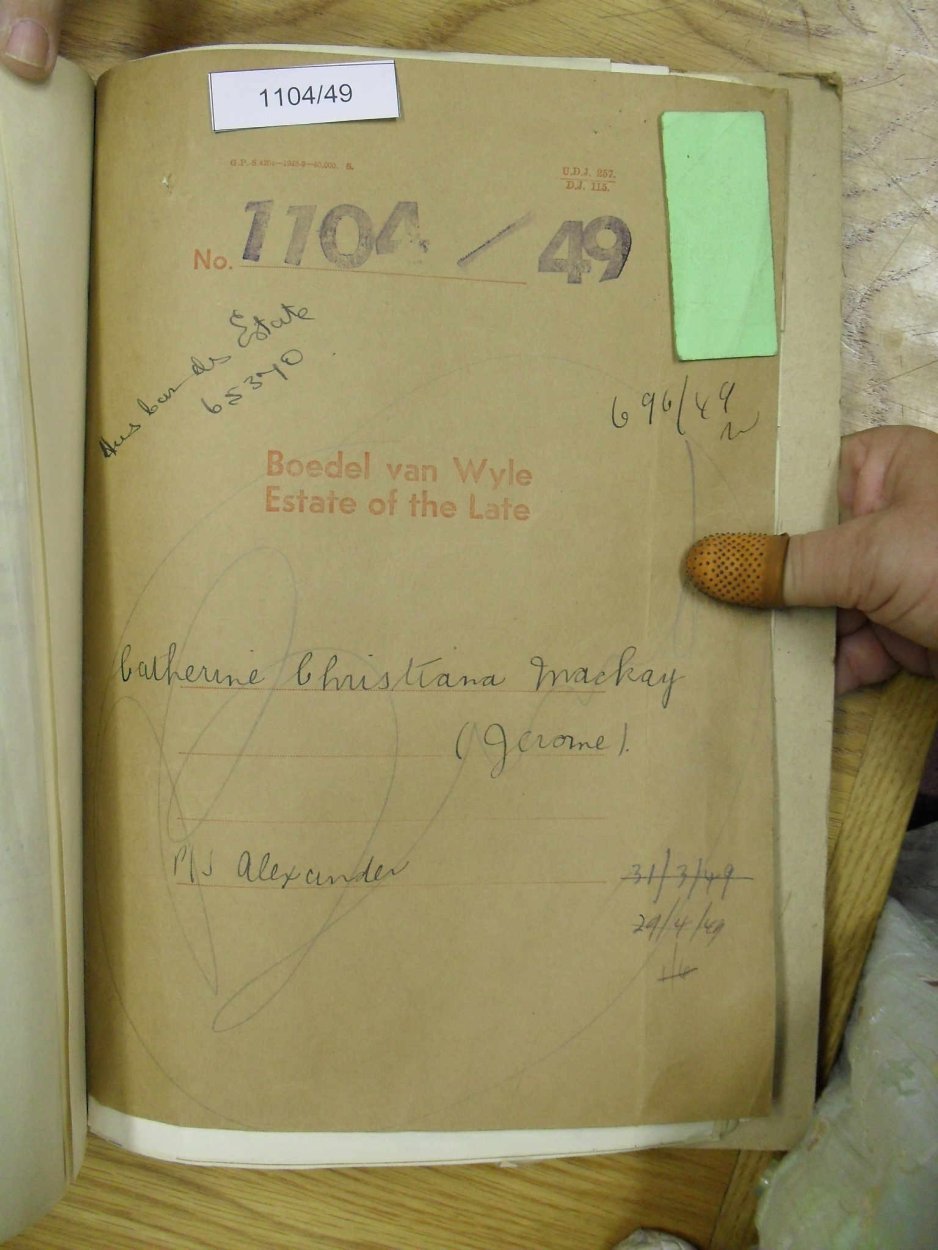 1104/49
G.P.-S.4204—1948-9—40,000. S.
U.D.J. 257.
D.J. 115.
No. 1104/49
Husbands Estate
65370
696/49
Boedel van Wyle
Estate of the Late
Catherine Christiana Mackay
(Jerome).
P/S Alexander
31/3/49
29/4/49